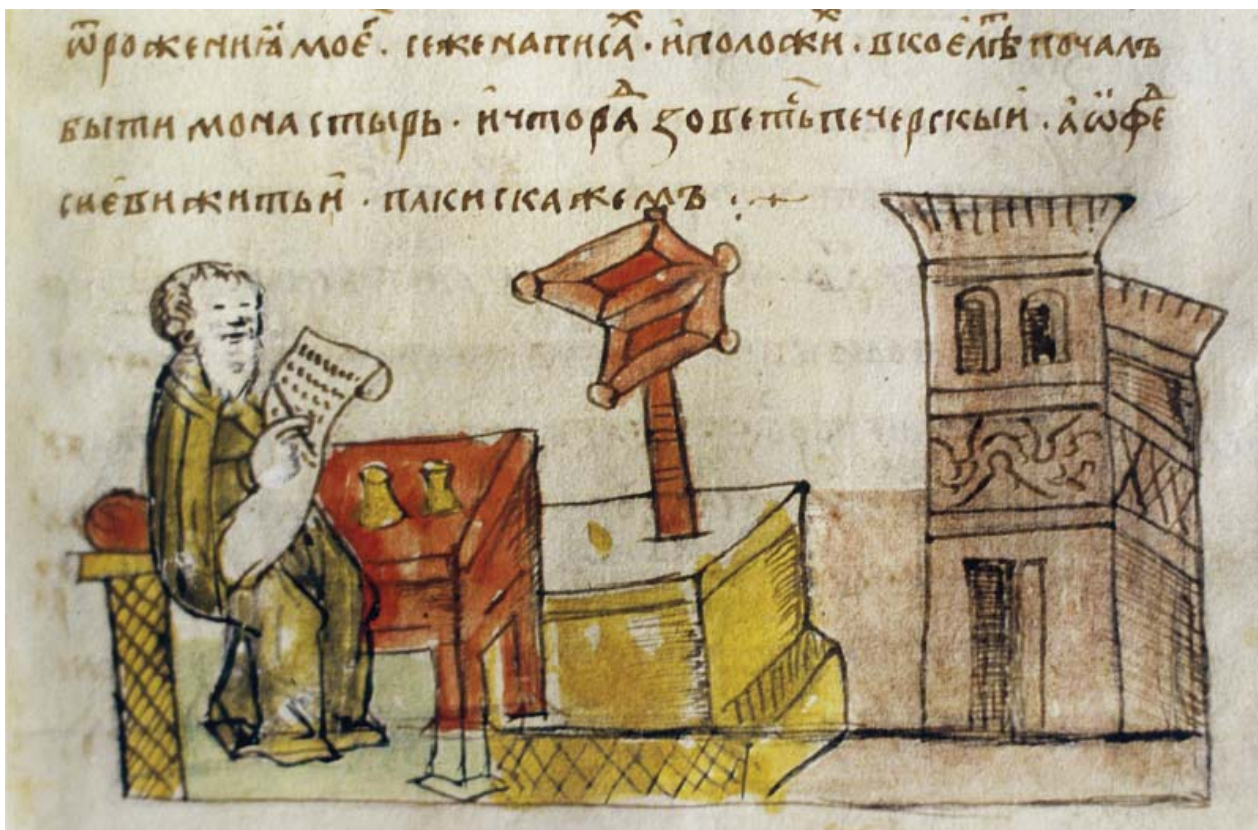 ѿроженїѧмоє҆ · сеженаписаⷯ · и҆положиⷯ · вкоеⷧ҇ѣⷮпочалъ
бытимонастырь · и҆чтораⷣзоветⷭ҇ьпечерскыи҆ · а҆ѡ҆феⷣ
сиѐвижитьи҆ · пакискажемъ :·